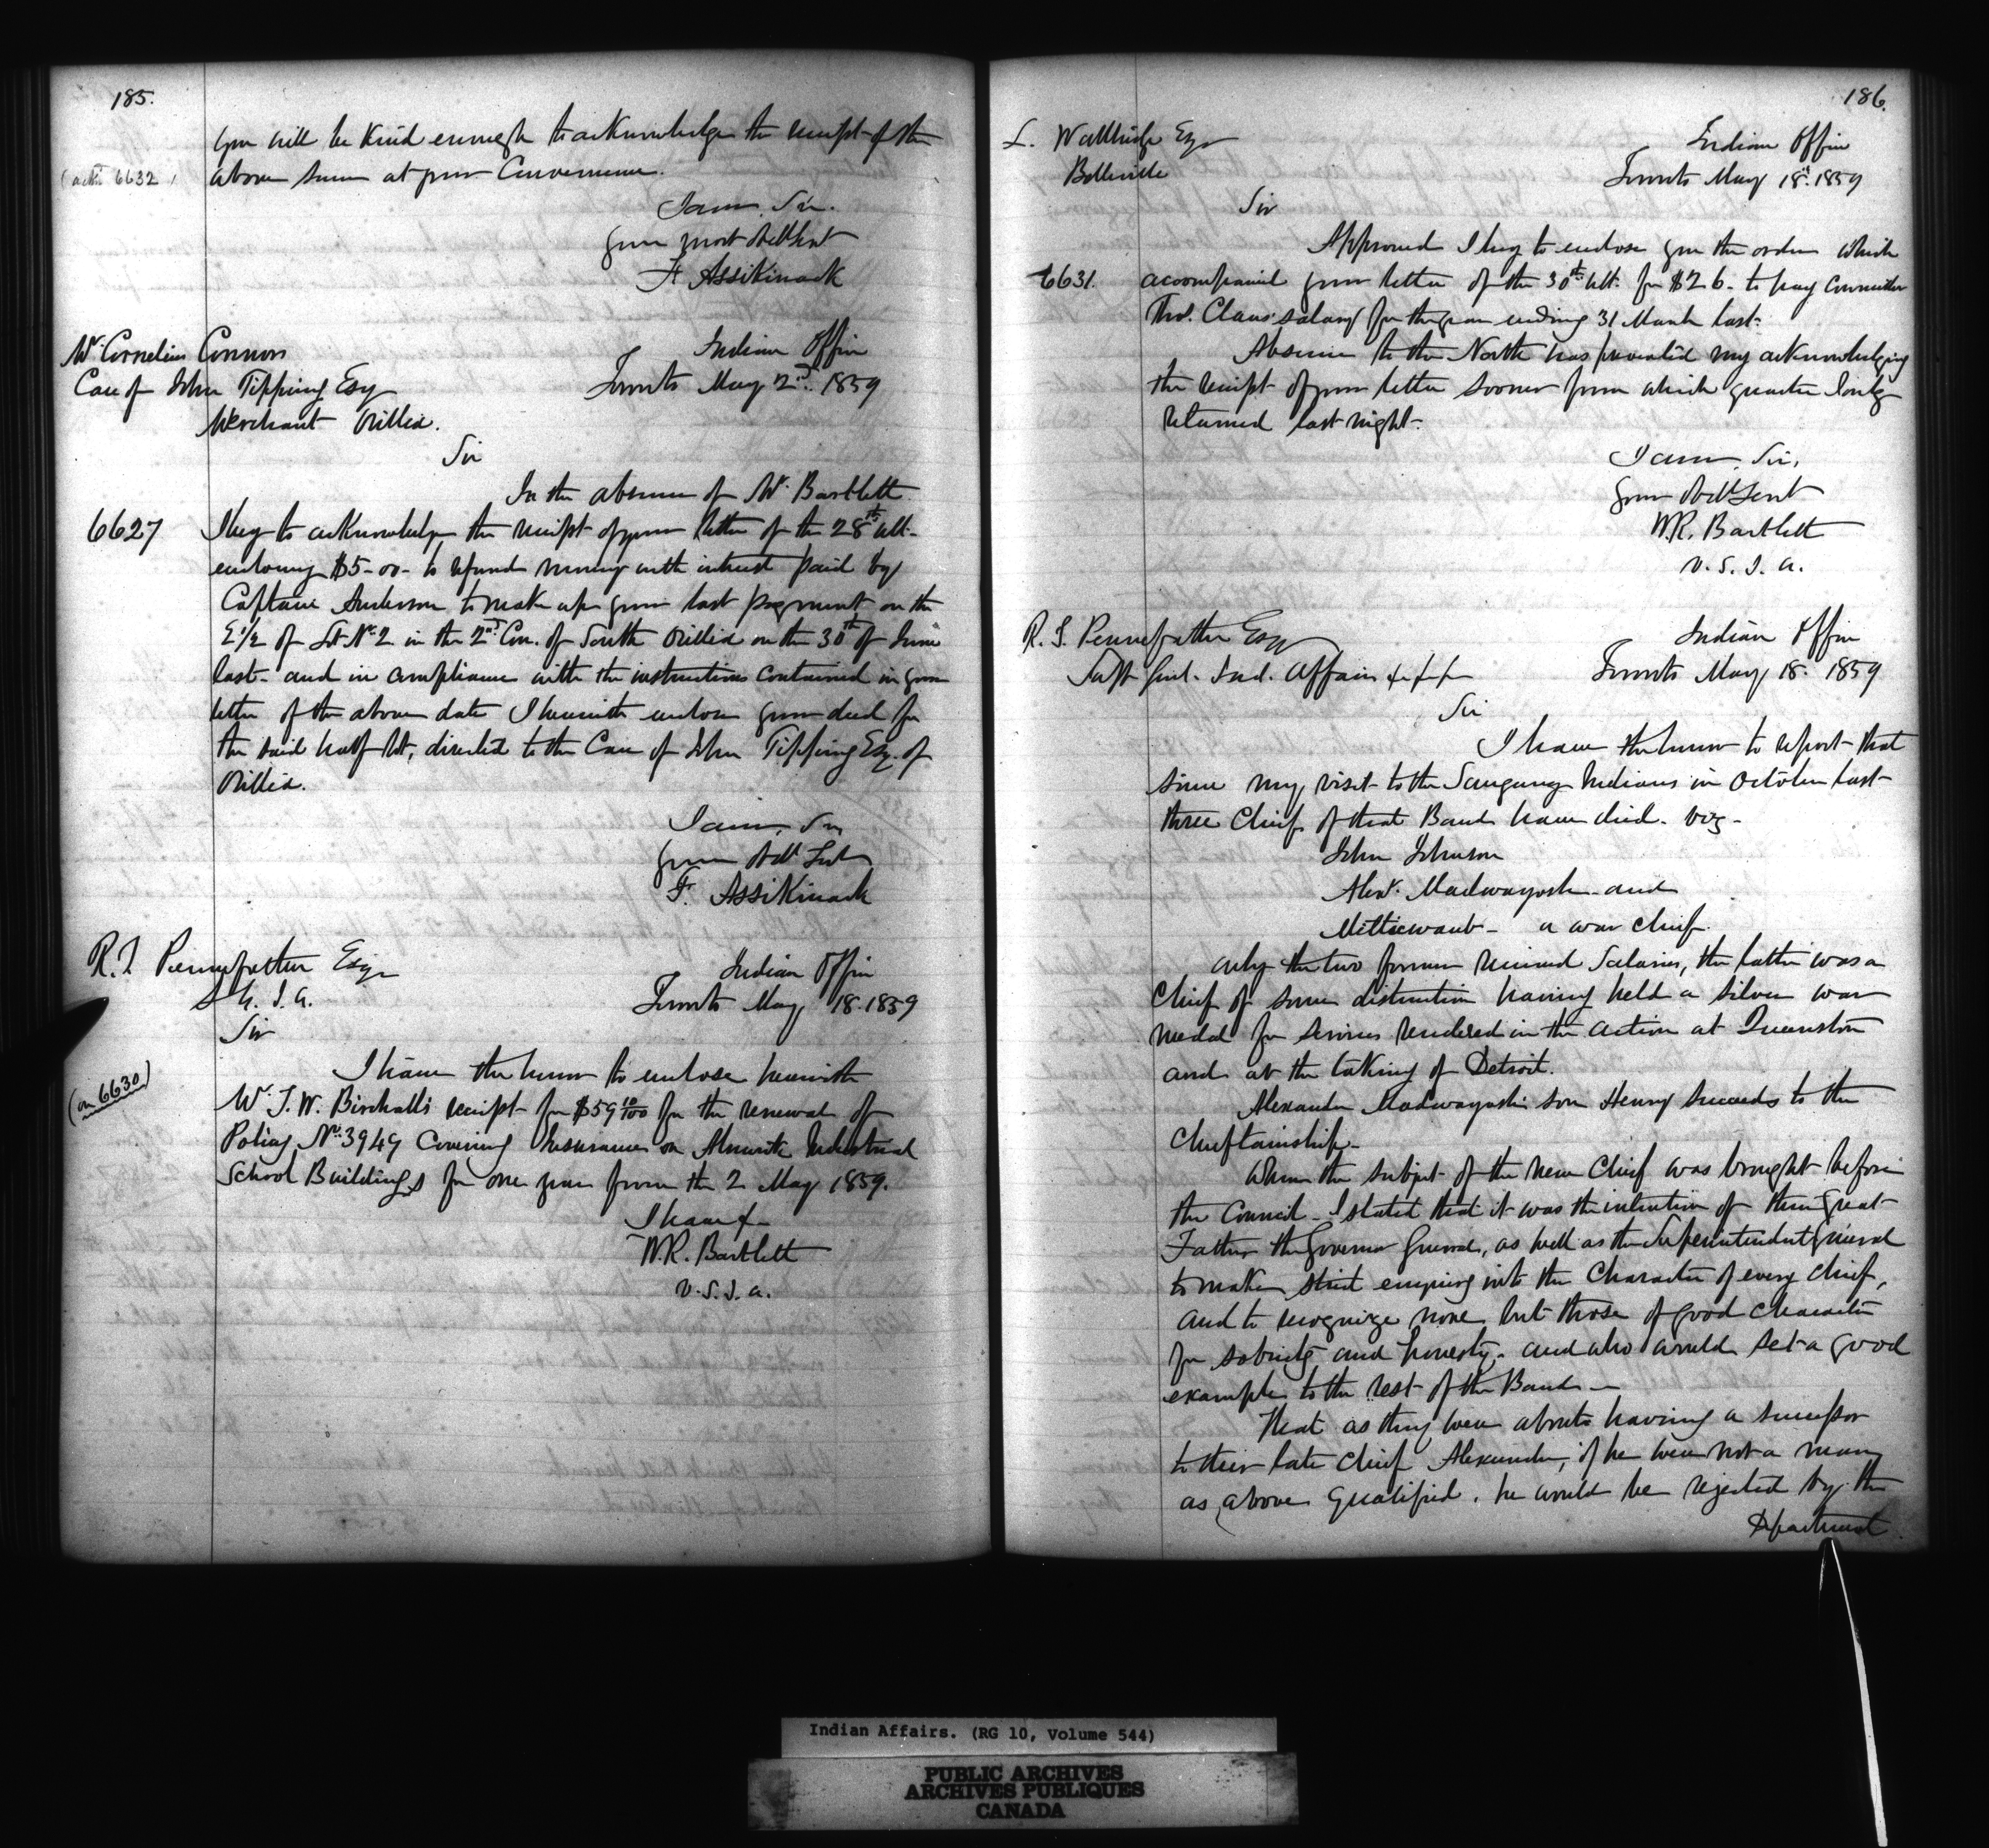 185.
you will be kind enough to acknowledge the receipt of the
(actn 6632)
above sum at your Convenience.
I am, Sir.
your most obdt Servt
F. Assikinack
Mr. Cornelius Connors
Care of John Tipping Esq
Merchant Orillia.
Indian Office
Toronto May 2nd. 1859
Sir
In the absence of Mr. Bartlett
6627
I beg to acknowledge the receipt of your letter of the 28th ult.
enclosing $5-00- to refund money with interest paid by
Captain Anderson to make up your last payment on the
E 1/2 of Lot No. 2 in the 2nd Con. of South Orillia on the 30th of June
last- and in compliance with the instructions contained in your
letter of the above date I herewith enclose your deed for
the said half lot, directed to the Care of John Tipping Esq. of
Orillia.
I am, Sir
your Obt Servt
F. Assikinack
R. T. Pennefather Esqr
S. G. I. A.
Indian Office
Toronto May 18. 1859
Sir
(on 6630)
I have the honor to enclose herewith
Mr. T. W. Birchall's receipt for $59 10/100 for the renewal of
Policy No. 3949 Covering Insurance on Alnwick Industrial
School Buildings for one year from the 2 May 1859.
I have &
W.R. Bartlett
V. S. I. A.
186.
L. Wallbridge Esqr
Belleville
Indian Office
Toronto May 18th. 1859
Sir
Approved I beg to enclose you the order which
6631.
accompanied your letter of the 30th ult. for $26- to pay
Thos. Claus' salary for the year ending 31 March last-
Absence to the North has prevented my acknowledging
the receipt of your letter sooner from which quarter I only
returned last night-
I am, Sir,
your Obdt Servt
W.R. Bartlett
V. S. I. A.
R. T. Pennefather Esqr
Supt Genl. Ind. Affairs &c &c &c
Indian Office
Toronto May 18. 1859
Sir
I have the honor to report that
since my visit to the Saugeeng Indians in October last-
three Chiefs of that Band have died. viz-
John Johnson
Alexr. Madwayosh and
Mettiewaub - a war chief.
only the two former received Salaries, the latter was a
Chief of some distinction having held a silver war
medal for services rendered in the action at Queenston
and at the taking of Detroit.
Alexander Madwayosh's son Henry succeeds to the
Chieftainship-
When the subject of the new Chief was brought before
the Council - I stated that it was the intention of their Great
Father the Governor General, as well as the Superintendent General
to make strict enquiry into the Character of every chief,
and to recognize none but those of good character
for sobriety and honesty - and who would set a good
example to the rest of the Band -
That as they were about having a successor
to their late chief Alexander, if he were not a man
as above qualified, he would be rejected by the
Department
Indian Affairs. (RG 10, Volume 544)
PUBLIC ARCHIVES
ARCHIVES PUBLIQUES
CANADA